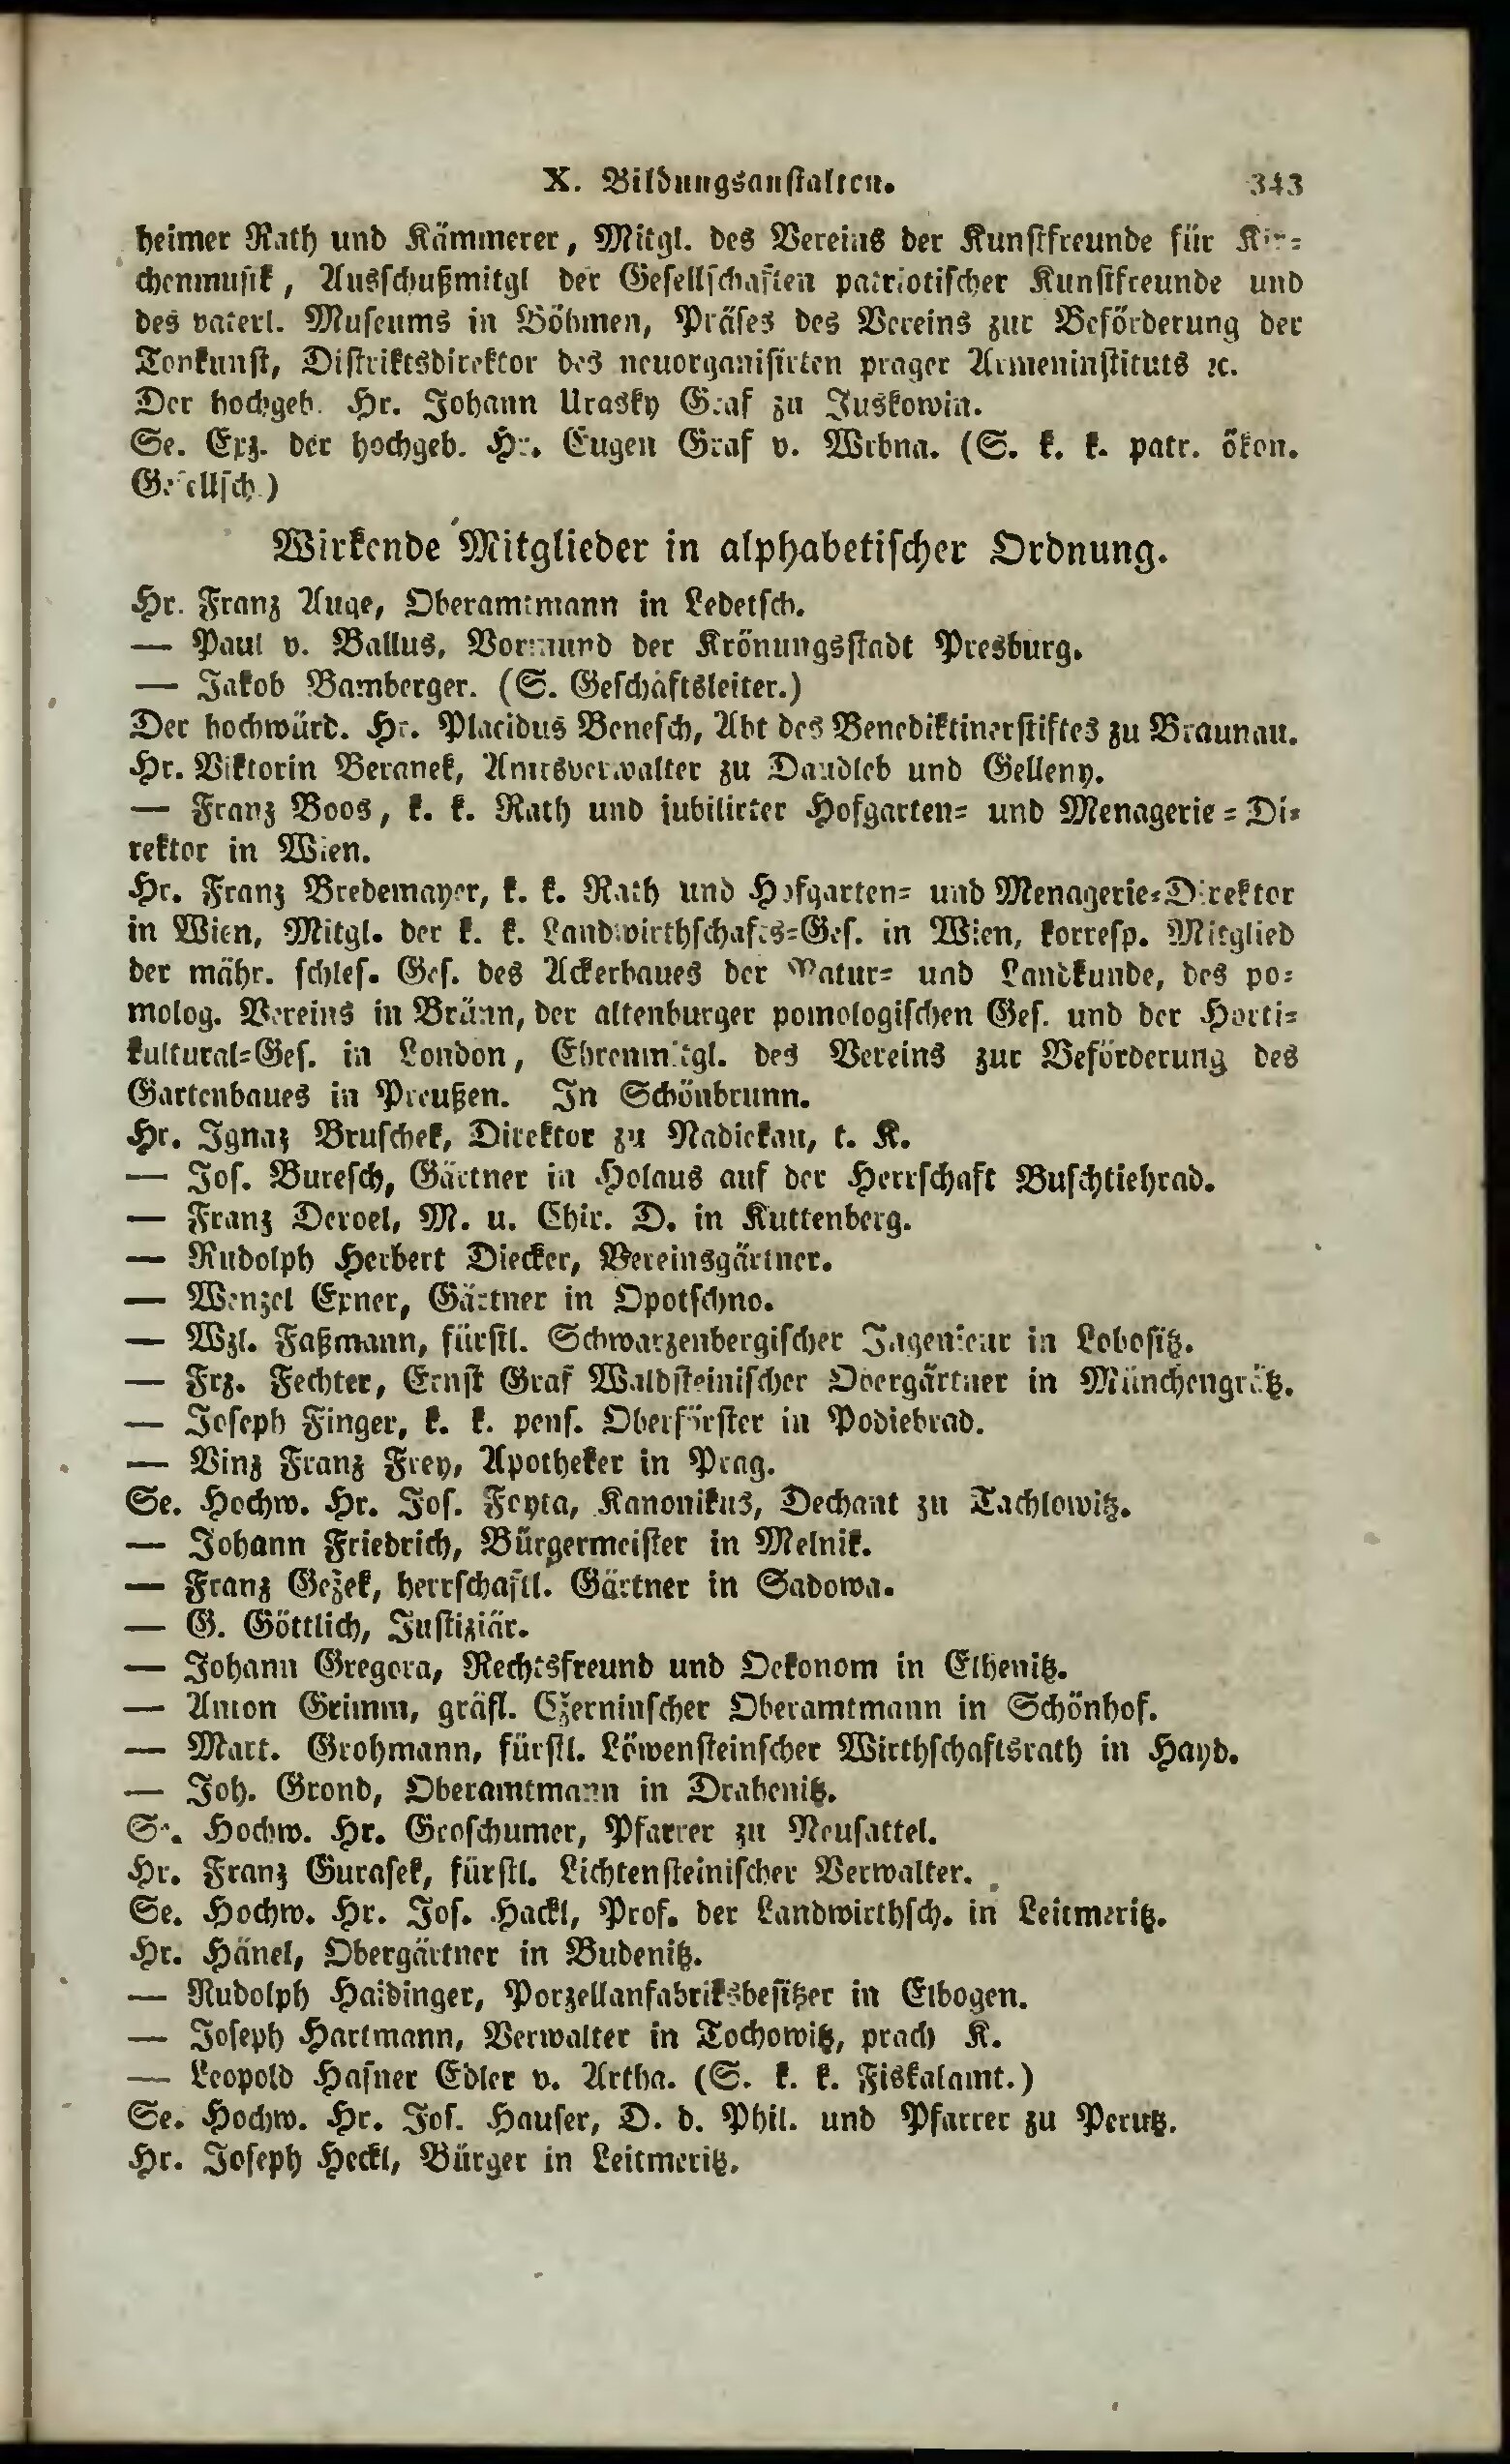 X. Bildungsanstalten. 343
heimer Rath und Kämmerer, Mitgl. des Vereins der Kunstfreunde für Kir-
chenmusik, Ausschußmitgl der Gesellschaften patriotischer Kunstfreunde und
des vaterl. Museums in Böhmen, Präses des Vereins zur Beförderung der
Tonkunst, Distriktsdirektor des neuorganisirten prager Armeninstituts ꝛc.
Der hochgeb. Hr. Johann Urasky Graf zu Juskowin.
Se. Exz. der hochgeb. Hr. Eugen Graf v. Wrbna. (S. k. k. patr. ökon.
Gesellsch.)
Wirkende Mitglieder in alphabetischer Ordnung.
Hr. Franz Auge, Oberamtmann in Ledetsch.
— Paul v. Ballus, Vormund der Krönungsstadt Presburg.
— Jakob Bamberger. (S. Geschäftsleiter.)
Der hochwürd. Hr. Placidus Benesch, Abt des Benediktinerstiftes zu Braunau.
Hr. Viktorin Beranek, Amtsverwalter zu Daudleb und Gelleny.
— Franz Boos, k. k. Rath und jubilirter Hofgarten- und Menagerie-Di-
rektor in Wien.
Hr. Franz Bredemayer, k. k. Rath und Hofgarten- und Menagerie-Direktor
in Wien, Mitgl. der k. k. Landwirthschafts-Ges. in Wien, korresp. Mitglied
der mähr. schles. Ges. des Ackerbaues der Natur- und Landkunde, des po-
molog. Vereins in Brünn, der altenburger pomologischen Ges. und der Horti-
kultural-Ges. in London, Ehrenmitgl. des Vereins zur Beförderung des
Gartenbaues in Preußen. In Schönbrunn.
Hr. Ignaz Bruschek, Direktor zu Radiekau, t. K.
— Jos. Buresch, Gärtner in Holaus auf der Herrschaft Buschtiehrad.
— Franz Deroel, M. u. Chir. D. in Kuttenberg.
— Rudolph Herbert Diecker, Vereinsgärtner.
— Wenzel Exner, Gärtner in Opotschno.
— Wzl. Faßmann, fürstl. Schwarzenbergischer Ingenieur in Lobositz.
— Frz. Fechter, Ernst Graf Waldsteinischer Obergärtner in Münchengrätz.
— Joseph Finger, k. k. pens. Oberförster in Podiebrad.
— Vinz Franz Frey, Apotheker in Prag.
Se. Hochw. Hr. Jos. Feyta, Kanonikus, Dechant zu Tachlowitz.
— Johann Friedrich, Bürgermeister in Melnik.
— Franz Gežek, herrschaftl. Gärtner in Sadowa.
— G. Göttlich, Justiziär.
— Johann Gregora, Rechtsfreund und Oekonom in Elhenitz.
— Anton Grimm, gräfl. Czerninscher Oberamtmann in Schönhof.
— Matt. Grohmann, fürstl. Löwensteinscher Wirthschaftsrath in Hayd.
— Joh. Grond, Oberamtmann in Drahenitz.
Se. Hochw. Hr. Groschumer, Pfarrer zu Neusattel.
Hr. Franz Gurasek, fürstl. Lichtensteinischer Verwalter.
Se. Hochw. Hr. Jos. Hackl, Prof. der Landwirthsch. in Leitmeritz.
Hr. Hänel, Obergärtner in Budenitz.
— Rudolph Haidinger, Porzellanfabriksbesitzer in Elbogen.
— Joseph Hartmann, Verwalter in Tochowitz, prach K.
— Leopold Hasner Edler v. Artha. (S. k. k. Fiskalamt.)
Se. Hochw. Hr. Jos. Hauser, D. d. Phil. und Pfarrer zu Perutz.
Hr. Joseph Heckl, Bürger in Leitmeritz.